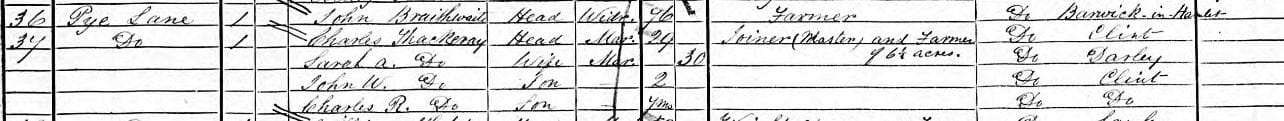 36 Pye Lane 1 John Braithwaite Head Widr. 76 Farmer Do Barwick-in-Elmet
37 Do 1 Charles Thackeray Head Mar. 29 Joiner (Master) and Farmer Do Clint
Sarah A. Do Wife Mar. 30 of 6½ acres. Do Darley
John W. Do Son 2 Do Clint
Charles R. Do Son 7ms Do Do